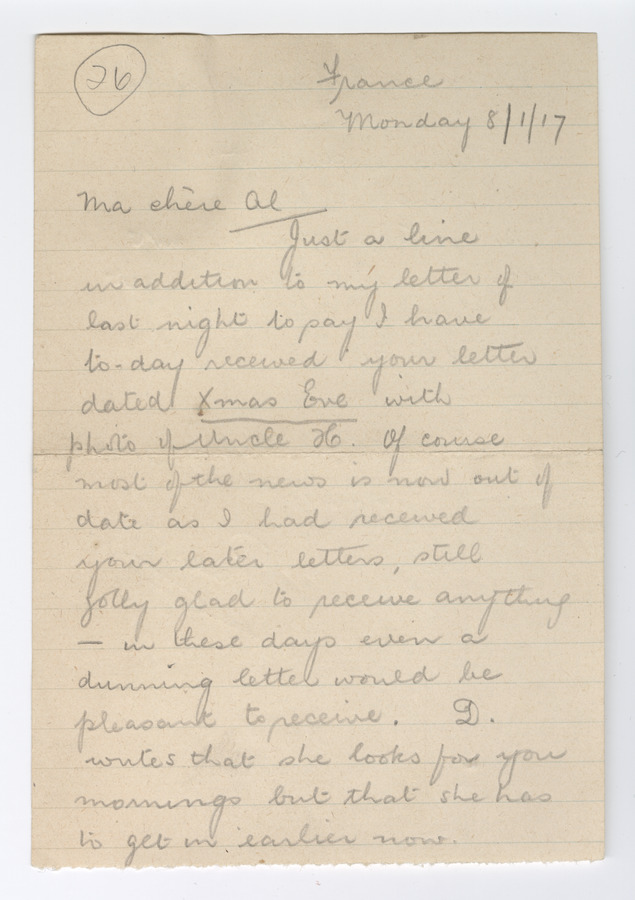 26
France
Monday 8/1/17
Ma chère Al
Just a line
in addition to my letter of
last night to say I have
to-day received your letter
dated Xmas Eve with
photo of Uncle H. Of course
most of the news is now out of
date as I had received
your later letters, still
jolly glad to receive anything
— in these days even a
dunning letter would be
pleasant to receive. D.
writes that she looks for you
mornings but that she has
to get in earlier now.